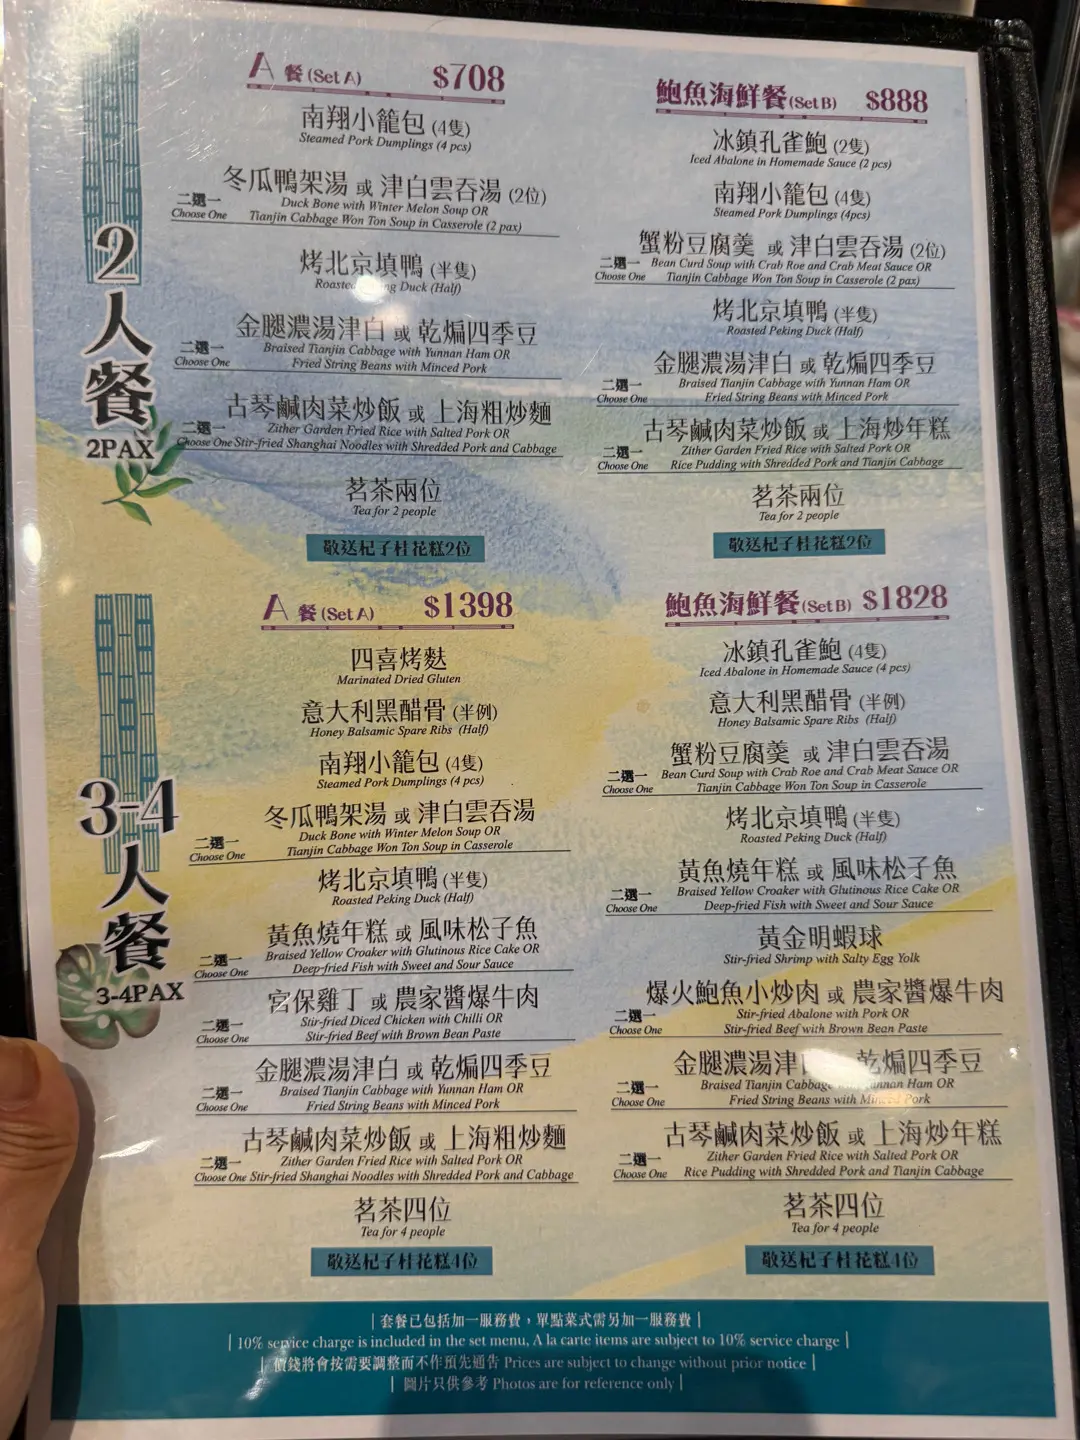 2人餐
2PAX
A 餐 (Set A) $708
南翔小籠包 (4隻)
Steamed Pork Dumplings (4 pcs)
冬瓜鴨架湯 或 津白雲吞湯 (2位)
二選一 Choose One
Duck Bone with Winter Melon Soup OR
Tianjin Cabbage Won Ton Soup in Casserole (2 pax)
烤北京填鴨 (半隻)
Roasted ng Duck (Half)
金腿濃湯津白 或 乾煸四季豆
二選一 Choose One
Braised Tianjin Cabbage with Yunnan Ham OR
Fried String Beans with Minced Pork
古琴鹹肉菜炒飯 或 上海粗炒麵
二選一 Choose One
Zither Garden Fried Rice with Salted Pork OR
Stir-fried Shanghai Noodles with Shredded Pork and Cabbage
茗茶兩位
Tea for 2 people
敬送杞子桂花糕2位
鮑魚海鮮餐(Set B) $888
冰鎮孔雀鮑 (2隻)
Iced Abalone in Homemade Sauce (2 pcs)
南翔小籠包 (4隻)
Steamed Pork Dumplings (4pcs)
蟹粉豆腐羹 或 津白雲吞湯 (2位)
二選一 Choose One
Bean Curd Soup with Crab Roe and Crab Meat Sauce OR
Tianjin Cabbage Won Ton Soup in Casserole (2 pax)
烤北京填鴨 (半隻)
Roasted Peking Duck (Half)
金腿濃湯津白 或 乾煸四季豆
二選一 Choose One
Braised Tianjin Cabbage with Yunnan Ham OR
Fried String Beans with Minced Pork
古琴鹹肉菜炒飯 或 上海炒年糕
二選一 Choose One
Zither Garden Fried Rice with Salted Pork OR
Rice Pudding with Shredded Pork and Tianjin Cabbage
茗茶兩位
Tea for 2 people
敬送杞子桂花糕2位
3-4人餐
3-4PAX
A 餐 (Set A) $1398
四喜烤麩
Marinated Dried Gluten
意大利黑醋骨 (半例)
Honey Balsamic Spare Ribs (Half)
南翔小籠包 (4隻)
Steamed Pork Dumplings (4 pcs)
冬瓜鴨架湯 或 津白雲吞湯
二選一 Choose One
Duck Bone with Winter Melon Soup OR
Tianjin Cabbage Won Ton Soup in Casserole
烤北京填鴨 (半隻)
Roasted Peking Duck (Half)
黃魚燒年糕 或 風味松子魚
二選一 Choose One
Braised Yellow Croaker with Glutinous Rice Cake OR
Deep-fried Fish with Sweet and Sour Sauce
宮保雞丁 或 農家醬爆牛肉
二選一 Choose One
Stir-fried Diced Chicken with Chilli OR
Stir-fried Beef with Brown Bean Paste
金腿濃湯津白 或 乾煸四季豆
二選一 Choose One
Braised Tianjin Cabbage with Yunnan Ham OR
Fried String Beans with Minced Pork
古琴鹹肉菜炒飯 或 上海粗炒麵
二選一 Choose One
Zither Garden Fried Rice with Salted Pork OR
Stir-fried Shanghai Noodles with Shredded Pork and Cabbage
茗茶四位
Tea for 4 people
敬送杞子桂花糕4位
鮑魚海鮮餐(Set B) $1828
冰鎮孔雀鮑 (4隻)
Iced Abalone in Homemade Sauce (4 pcs)
意大利黑醋骨 (半例)
Honey Balsamic Spare Ribs (Half)
蟹粉豆腐羹 或 津白雲吞湯
二選一 Choose One
Bean Curd Soup with Crab Roe and Crab Meat Sauce OR
Tianjin Cabbage Won Ton Soup in Casserole
烤北京填鴨 (半隻)
Roasted Peking Duck (Half)
黃魚燒年糕 或 風味松子魚
二選一 Choose One
Braised Yellow Croaker with Glutinous Rice Cake OR
Deep-fried Fish with Sweet and Sour Sauce
黃金明蝦球
Stir-fried Shrimp with Salty Egg Yolk
爆火鮑魚小炒肉 或 農家醬爆牛肉
二選一 Choose One
Stir-fried Abalone with Pork OR
Stir-fried Beef with Brown Bean Paste
金腿濃湯津 乾煸四季豆
二選一 Choose One
Braised Tianjin Cabbage Yunnan Ham OR
Fried String Beans with Minced Pork
古琴鹹肉菜炒飯 或 上海炒年糕
二選一 Choose One
Zither Garden Fried Rice with Salted Pork OR
Rice Pudding with Shredded Pork and Tianjin Cabbage
茗茶四位
Tea for 4 people
敬送杞子桂花糕4位
| 套餐已包括加一服務費，單點菜式需另加一服務費 |
| 10% service charge is included in the set menu, A la carte items are subject to 10% service charge |
| 價錢將會按需要調整而不作預先通告 Prices are subject to change without prior notice |
| 圖片只供參考 Photos are for reference only |